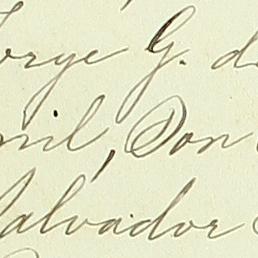 orge G. d
mil, Don
Salvador